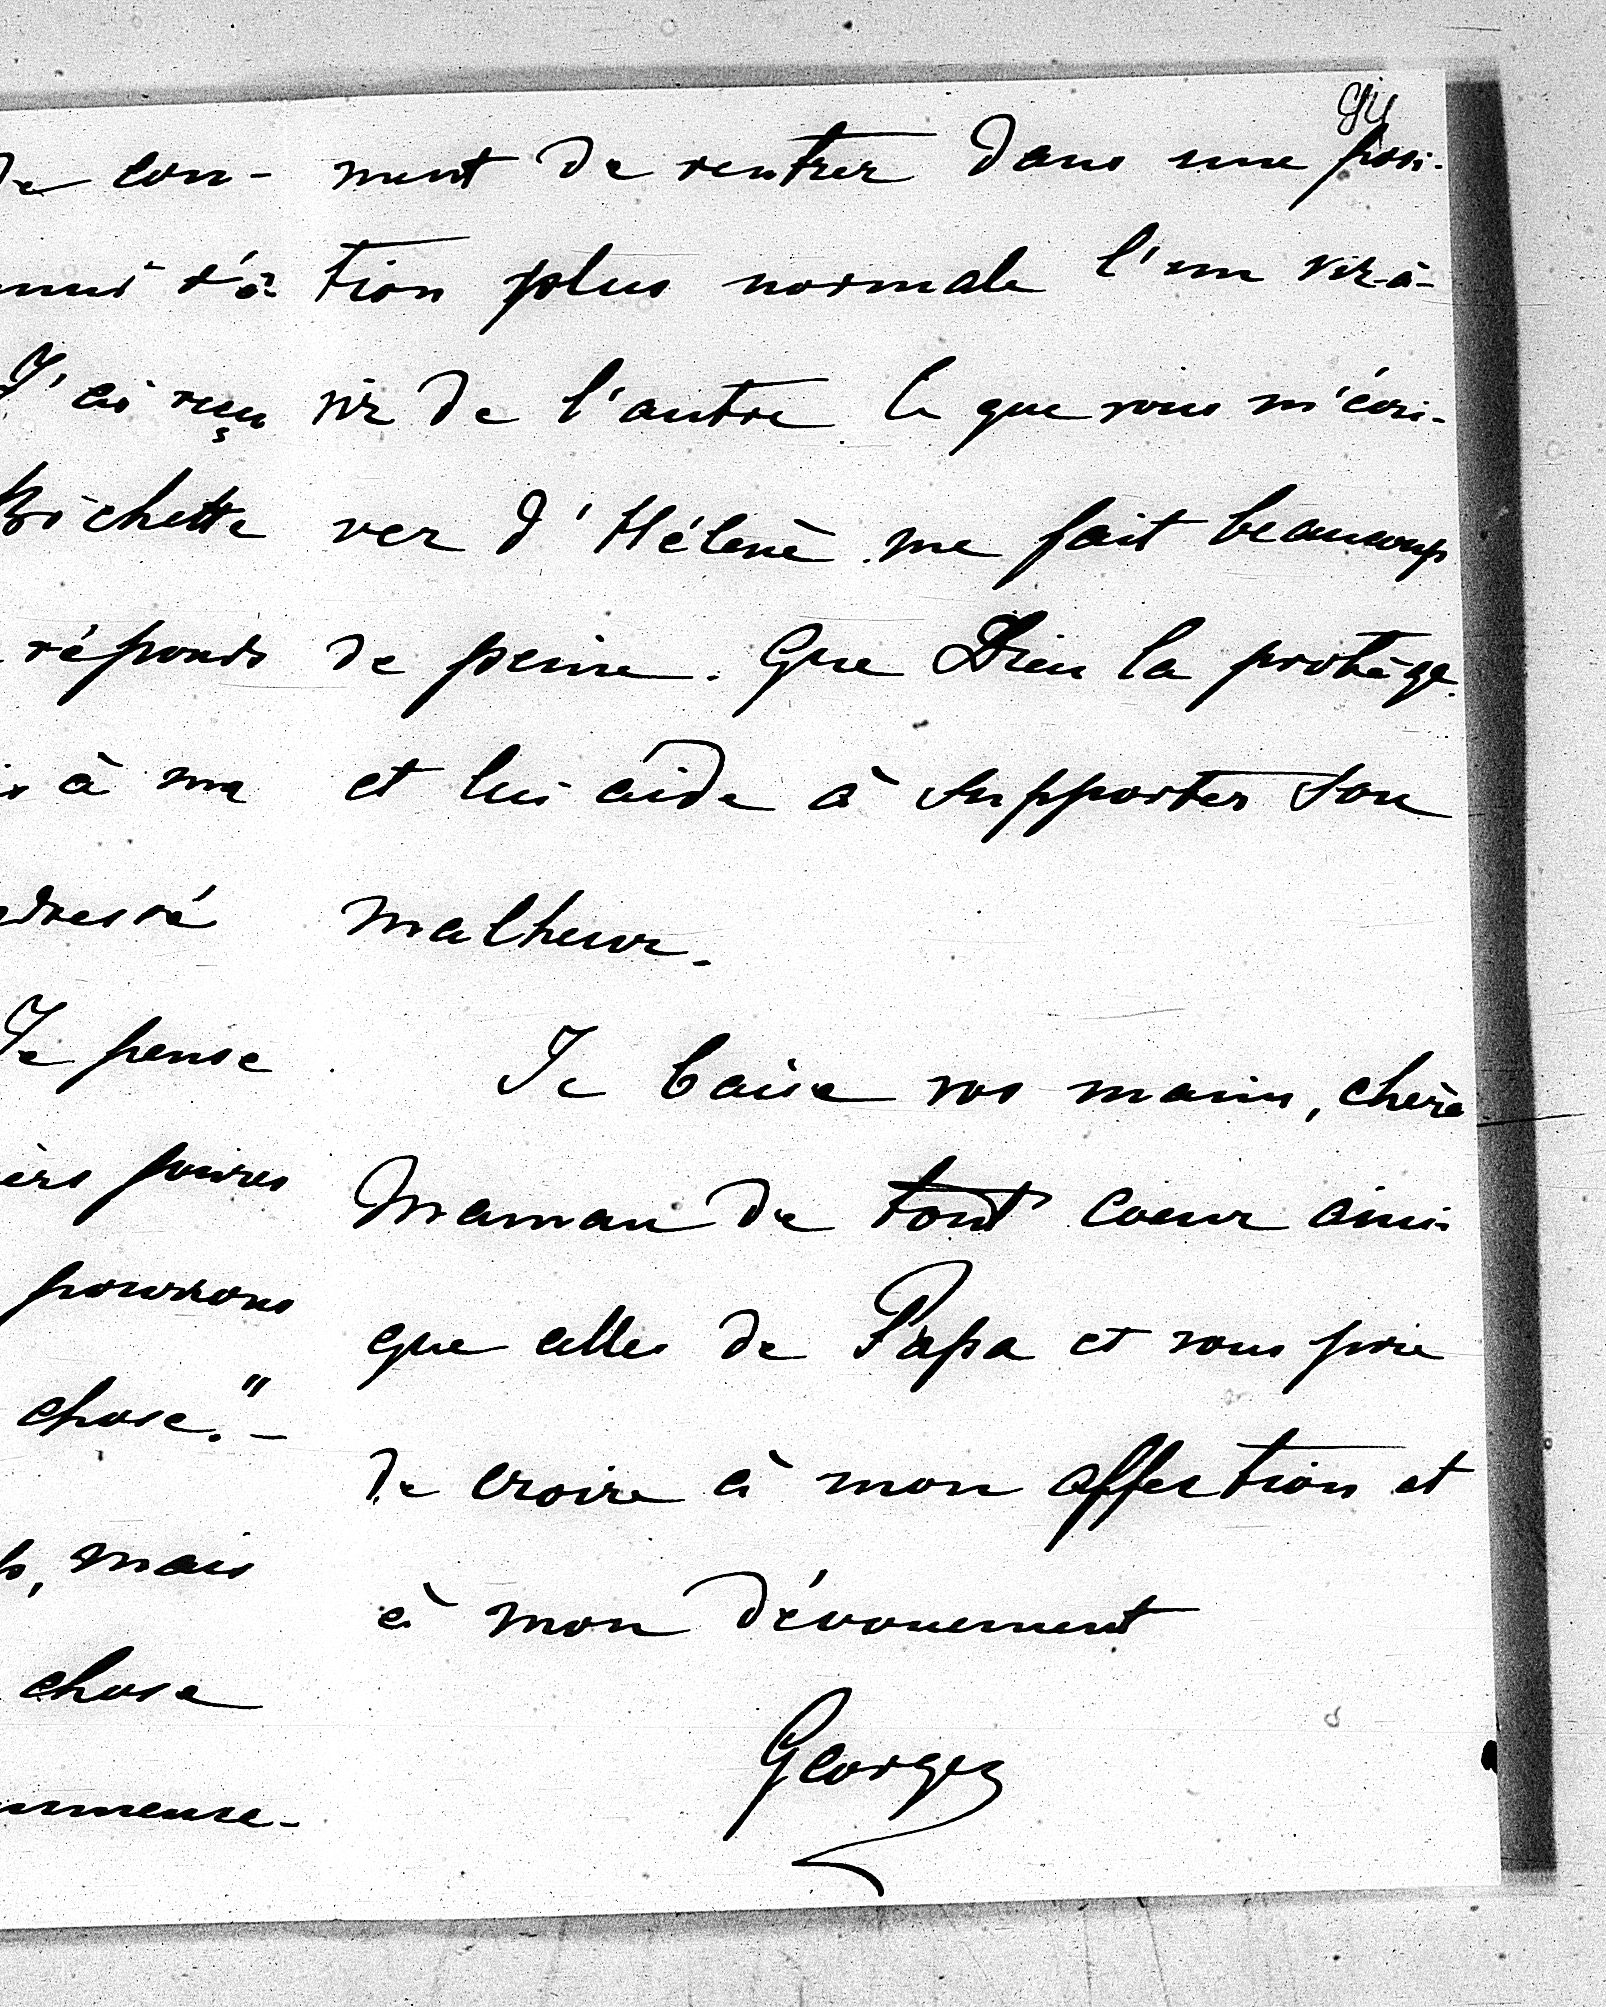 de con-
J'ai reçu
Bichette
réponds
à ma
Je pense
pourrons
chose."-
mais
chose
94
ment de rentrer dans une posi-
tion plus normale l'un vis-à-
vis de l'autre. Ce que vous m'écri-
vez d'Hélène me fait beaucoup
de peine. Que Dieu la protège
et lui aide à supporter son
malheur.
Je baise vos mains, chère
Maman de tout coeur ainsi
que celles de Papa et vous prie
de croire à mon affection et
à mon dévouement
Georges